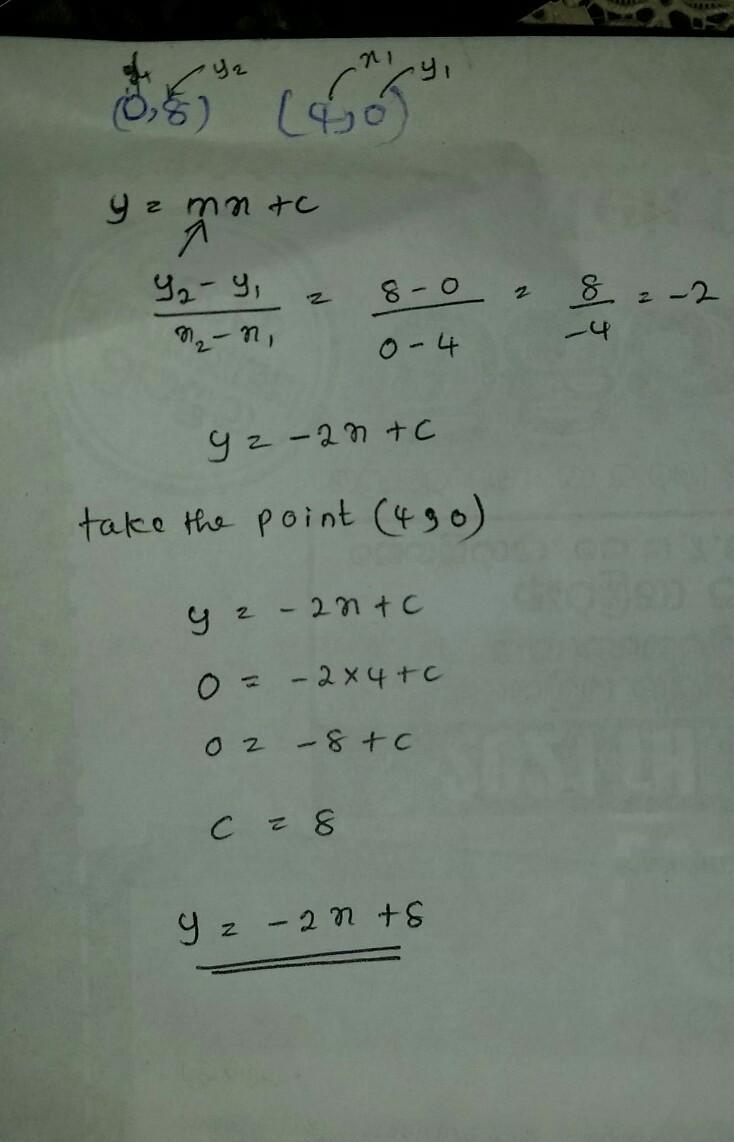 y₂ x₁ y₁
(0,8) (4,0)
y = mx + c
y₂ - y₁ / x₂ - x₁ = 8 - 0 / 0 - 4 = 8 / -4 = -2
y = -2x + c
take the point (4,0)
y = -2x + c
0 = -2×4 + c
0 = -8 + c
c = 8
y = -2x + 8